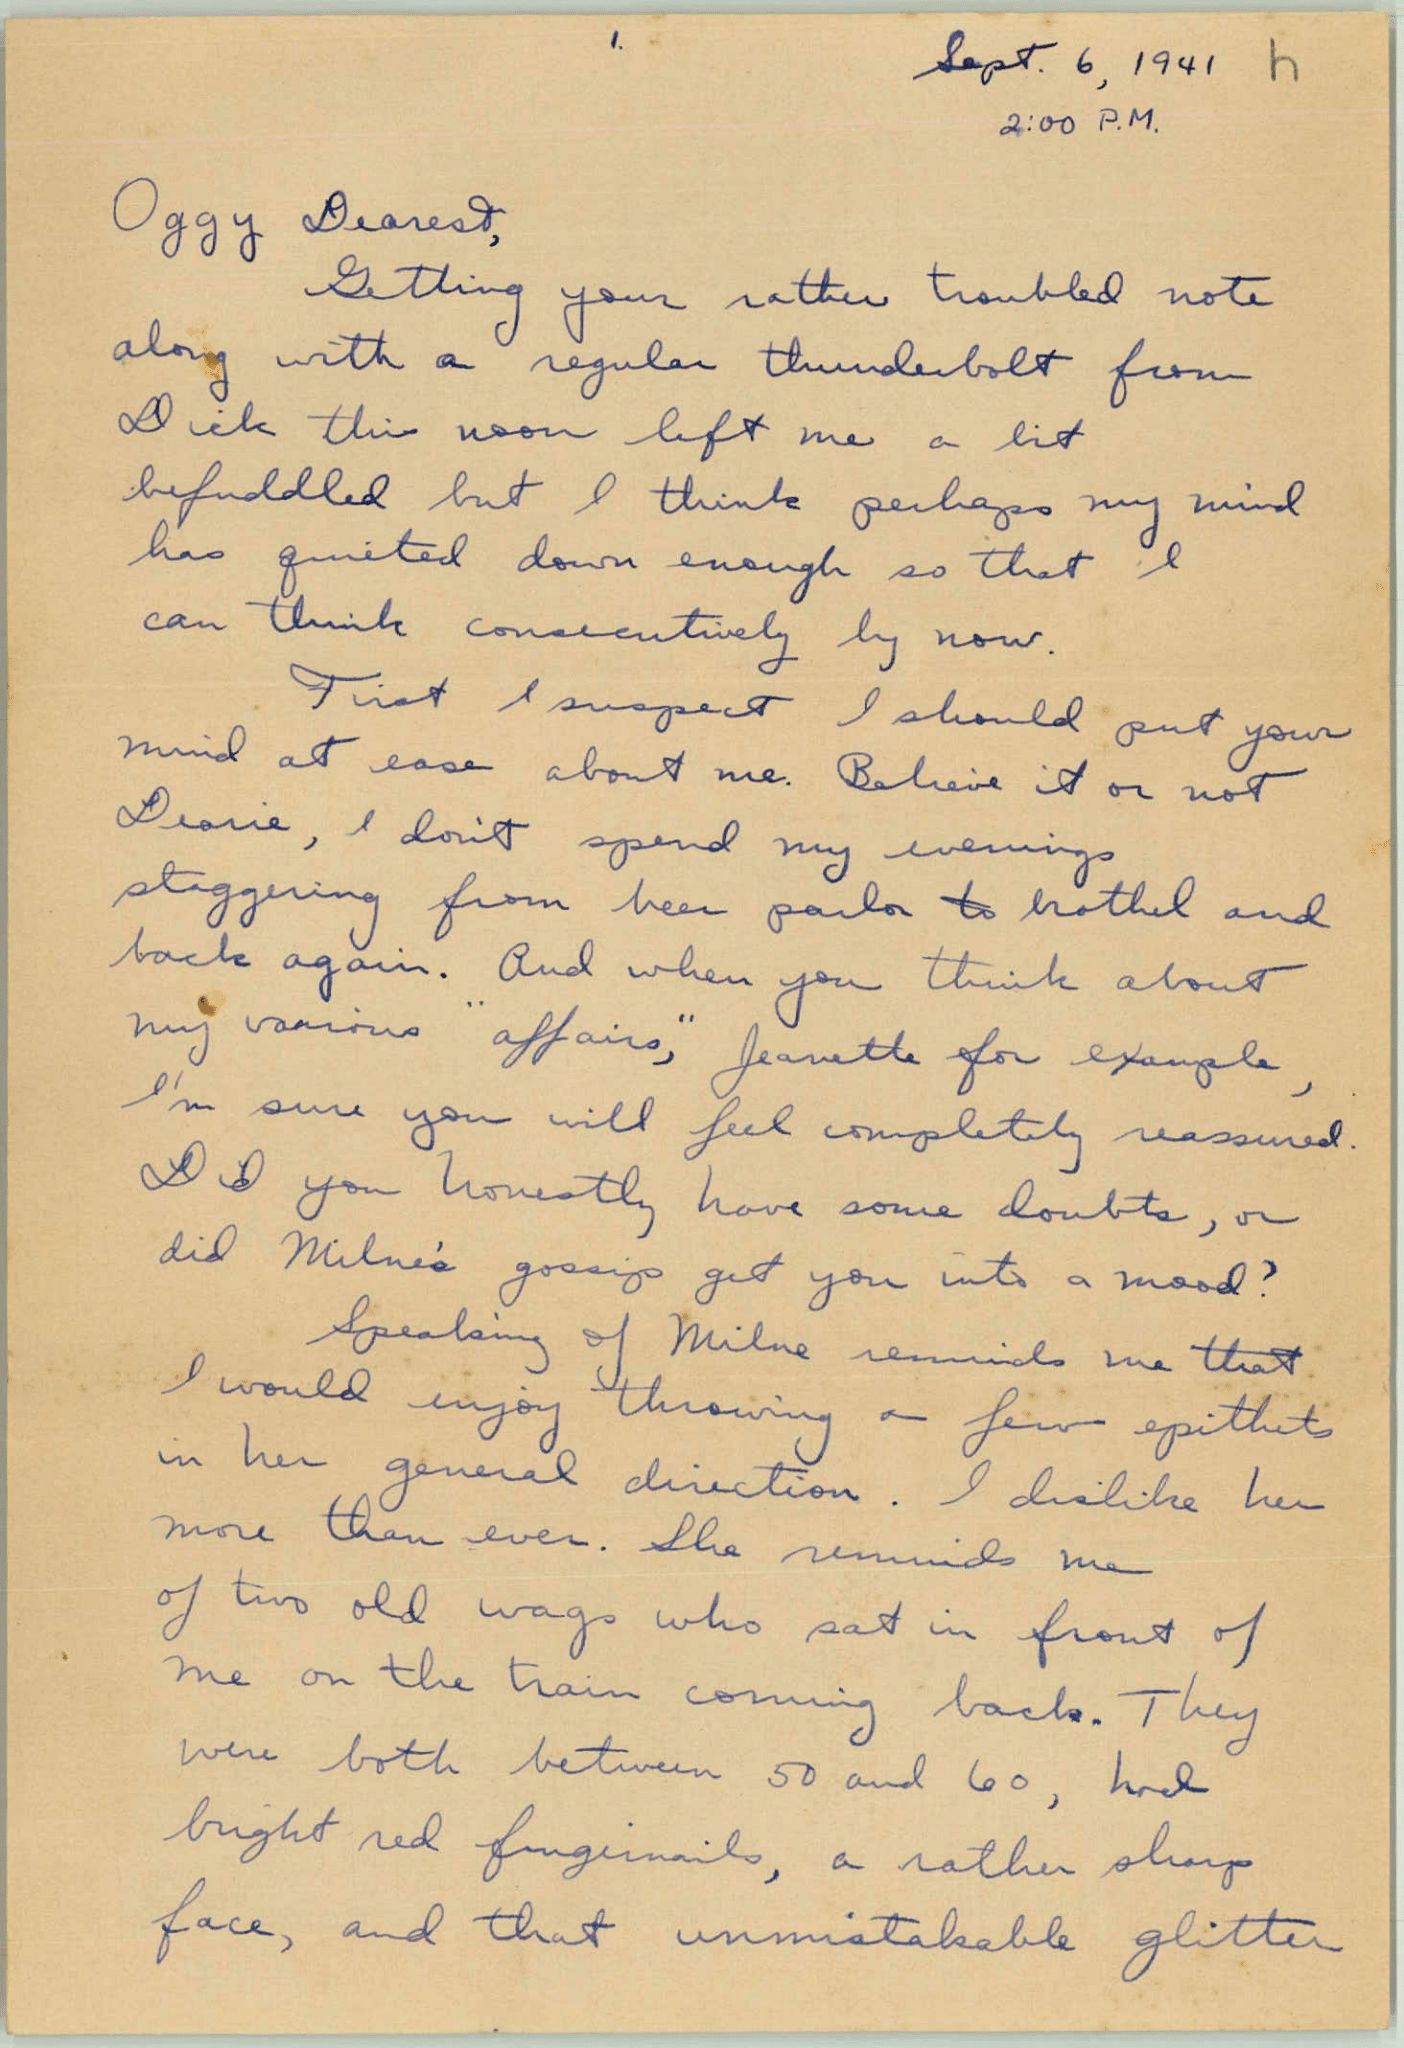 1.
Sept. 6, 1941 h
2:00 P.M.
Oggy Dearest,
Getting your rather troubled note
along with a regular thunderbolt from
Dick this noon left me a bit
befuddled but I think perhaps my mind
has quieted down enough so that I
can think consecutively by now.
First I suspect I should put your
mind at ease about me. Believe it or not
Dearie, I don't spend my evenings
staggering from beer parlor to brothel and
back again. And when you think about
my various "affairs," Jeanette for example,
I'm sure you will feel completely reassured.
Did you honestly have some doubts, or
did Milne's gossip get you into a mood?
Speaking of Milne reminds me that
I would enjoy throwing a few epithets
in her general direction. I dislike her
more than ever. She reminds me
of two old wags who sat in front of
me on the train coming back. They
were both between 50 and 60, had
bright red fingernails, a rather sharp
face, and that unmistakable glitter